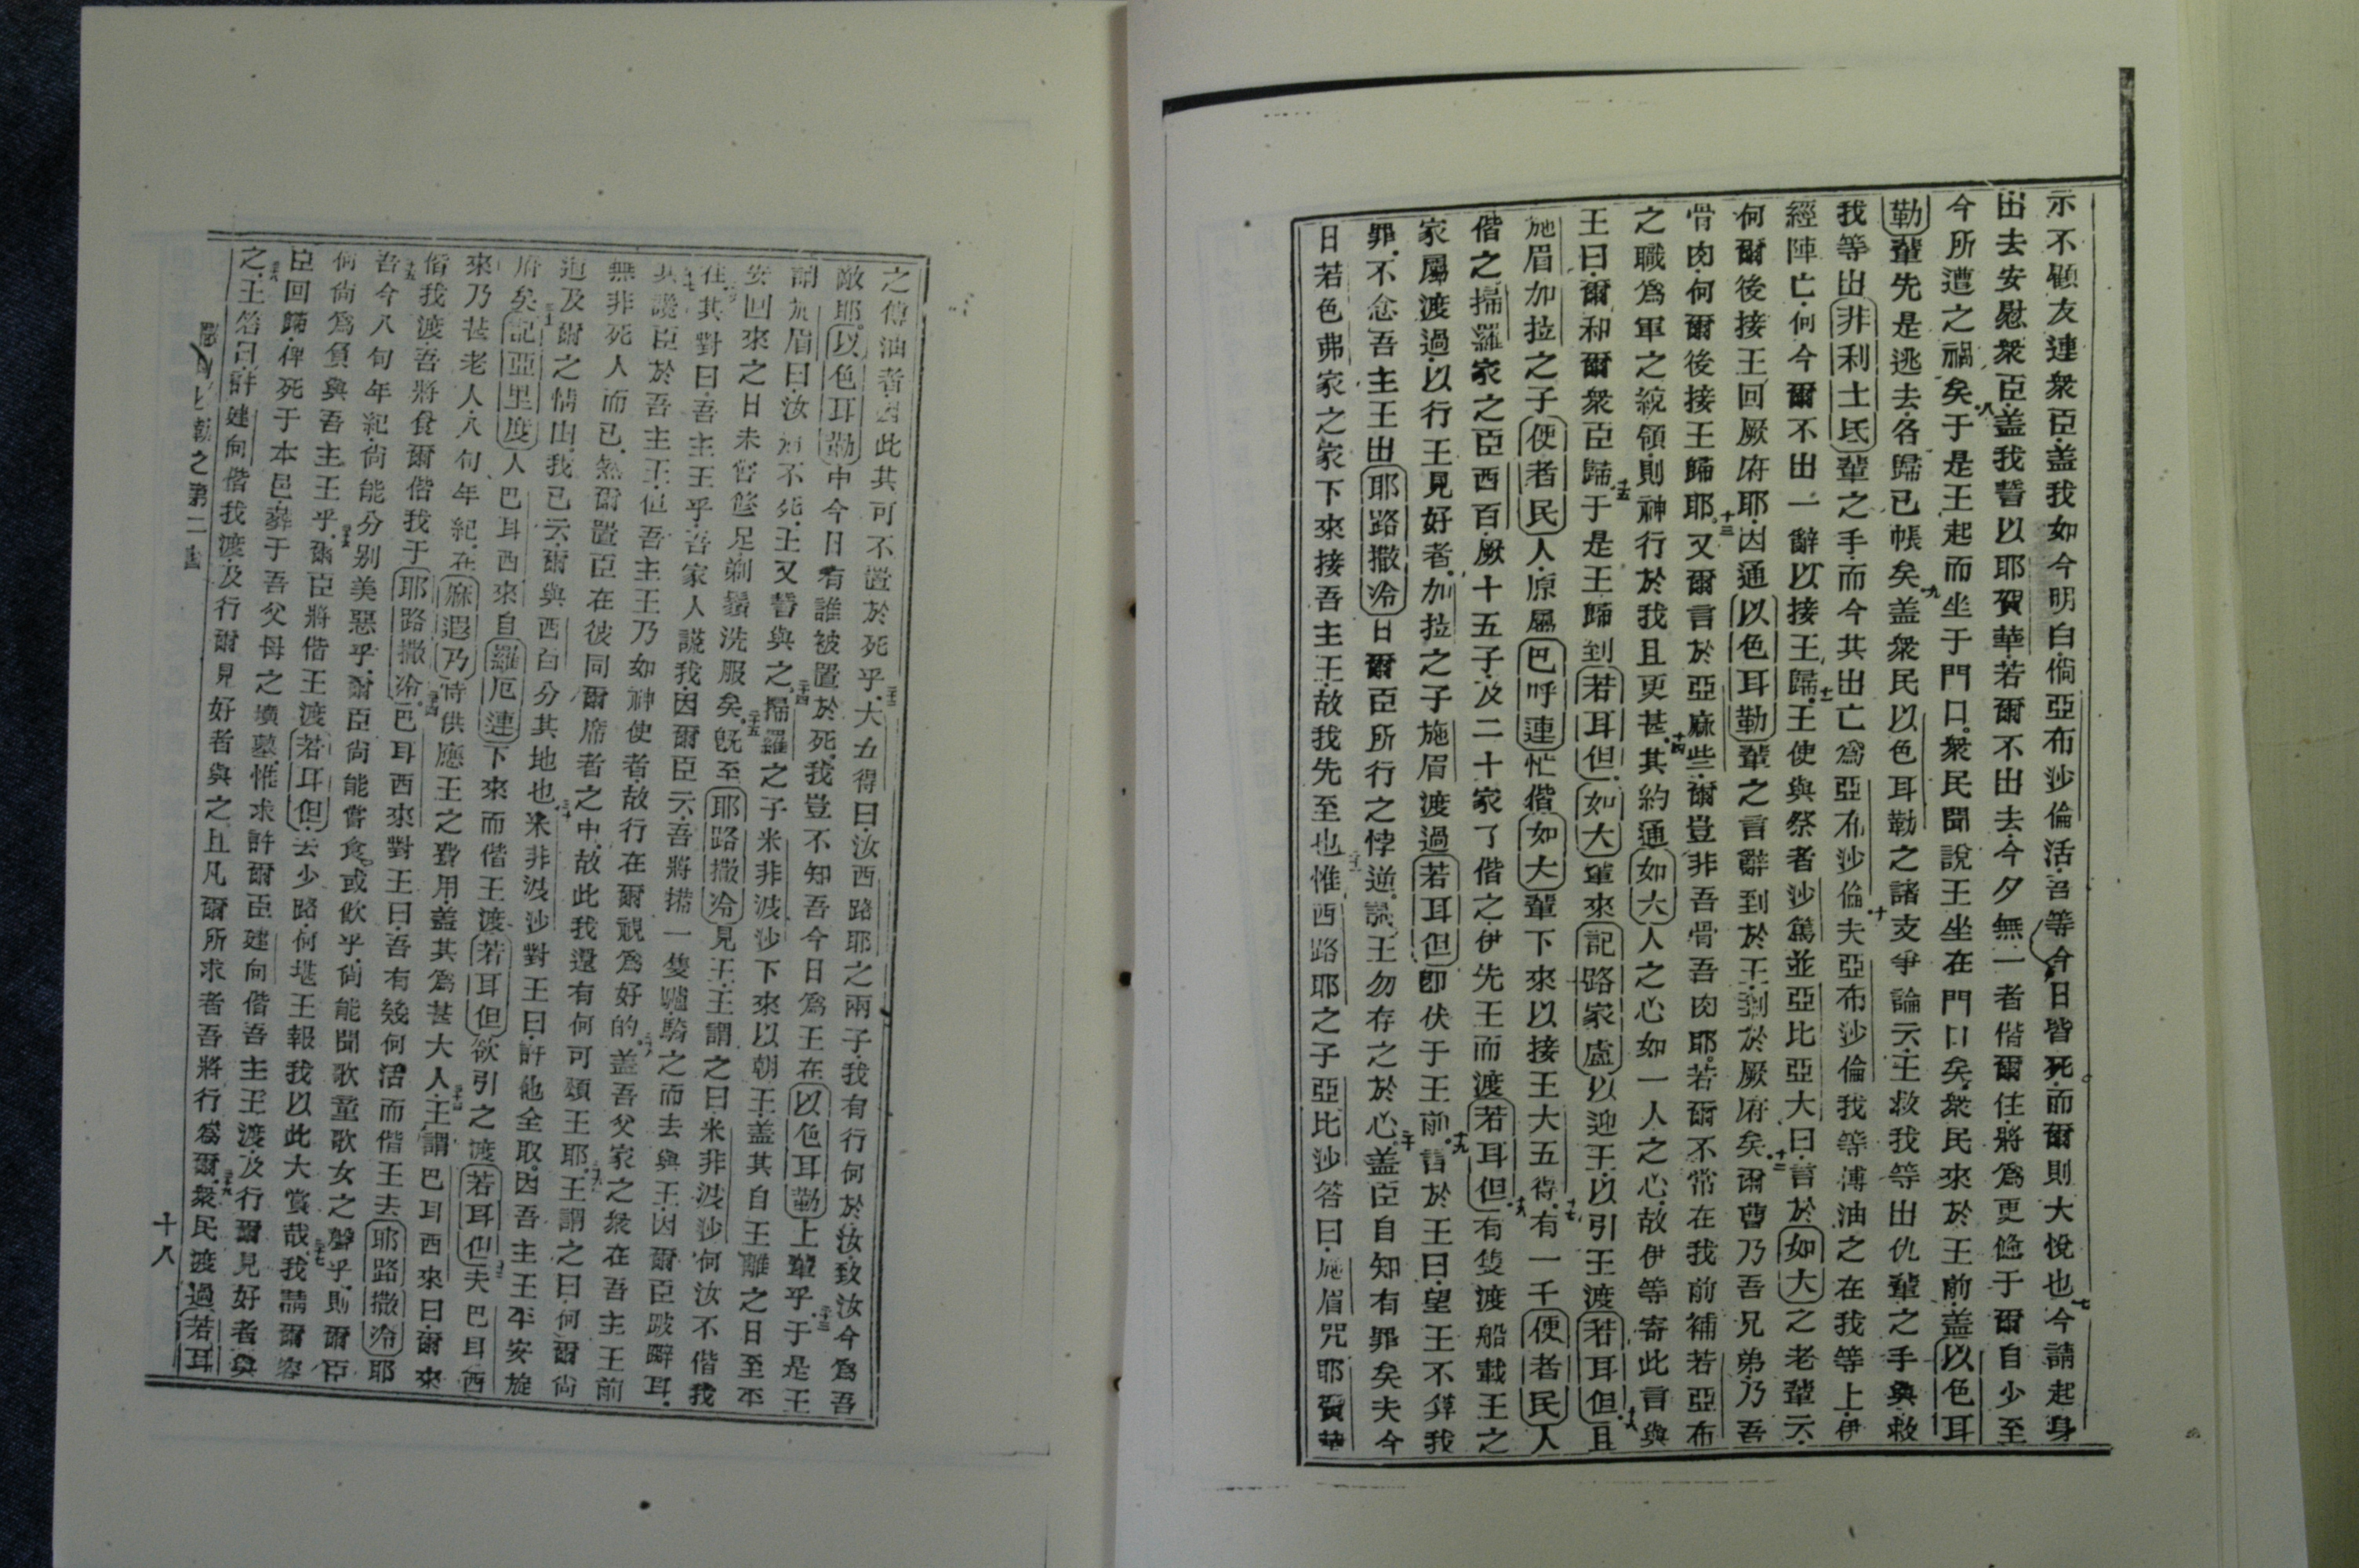 示不顧友連衆臣盖我如今明白倘亞布沙倫活吾等今日皆死而爾則大悅也七今請起身
出去安慰衆臣盖我誓以耶賀華若爾不出去今夕無一者偕爾住將爲更慘于爾自少至
今所遭之禍矣八于是王起而坐于門口衆民聞說王坐在門口矣衆民來於王前盖以色耳
勒輩先是逃去各歸已帳矣九盖衆民以色耳勒之諸支爭論云王救我等出仇輩之手與救
我等出非利士氐輩之手而今其出亡爲亞布沙倫十夫亞布沙倫我等傅油之在我等上伊
經陣亡何今爾不出一辭以接王歸十一王使與祭者沙篤並亞比亞大曰言於如大之老輩云
何爾後接王回厥府耶因通以色耳勒輩之言辭到於王到於厥府矣十二爾曹乃吾兄弟乃吾
骨肉何爾後接王歸耶十三又爾言於亞麻些爾豈非吾骨吾肉耶若爾不常在我前補若亞布
之職爲軍之統領則神行於我且更甚十四其約通如大人之心如一人之心故伊等寄此言與
王曰爾和爾衆臣歸十五于是王歸到若耳但如大輩來記路家盧以迎王以引王渡若耳但十六且
施眉加拉之子便者民人原屬巴呼連忙偕如大輩下來以接王大五得十七有一千便者民人
偕之掃羅家之臣西百厥十五子及二十家丁偕之伊先王而渡若耳但十八有隻渡船載王之
家屬渡過以行王見好者加拉之子施眉渡過若耳但卽伏于王前十九言於王曰望王不算我
罪不念吾主王出耶路撒冷日爾臣所行之悖逆誠王勿存之於心二十盖臣自知有罪矣夫今
日若色弗家之家下來接吾主王故我先至也惟西路耶之子亞比沙答曰施眉咒耶賀華
之傅油者因此其可不置於死乎大五得曰汝西路耶之兩子我有行何於汝致汝今爲吾
敵耶以色耳勒中今日有誰被置於死我豈不知吾今日爲王在以色耳勒上輩乎二十三于是王
謂施眉曰汝必不死王又誓與之二十四掃羅之子米非波沙下來以朝王盖其自王離之日至平
安回來之日未曾修足剃鬚洗服矣二十五旣至耶路撒冷見王王謂之曰米非波沙何汝不偕我
往其對曰吾主王乎吾家人謊我因爾臣云吾將撘一隻驢騎之而去與王因爾臣跛脚耳
其讒臣於吾主王但吾主王乃如神使者故行在爾視爲好的二十八盖吾父家之衆在吾主王前
無非死人而已然爾置臣在彼同爾席者之中故此我還有何可煩王耶二十九王謂之曰何爾尚
道及爾之情由我已云爾與西百分其地也三十米非波沙對王曰許他全取因吾主王平安旋
府矣記亞里度人巴耳西來自羅厄連下來而偕王渡若耳但欲引之渡若耳但夫巴耳西
來乃甚老人八旬年紀在麻遐乃時供應王之費用盖其爲甚大人王謂巴耳西來曰爾來
偕我渡吾將食爾偕我于耶路撒冷三十四巴耳西來對王曰吾有幾何活而偕王去耶路撒冷耶
三十五吾今八旬年紀尚能分别美惡乎爾臣尚能嘗食或飲乎尚能聞歌童歌女之聲乎則爾臣
何尚爲負與吾主王乎三十六爾臣將偕王渡若耳但去少路何堪王報我以此大賞哉三十七我請爾容
臣回歸俾死于本邑葬于吾父母之墳墓惟求許爾臣建向偕吾主王渡及行爾見好者與
之三十八王答曰許建向偕我渡及行爾見好者與之且凡爾所求者吾將行爲爾三十九衆民渡過若耳
之第二書
十八